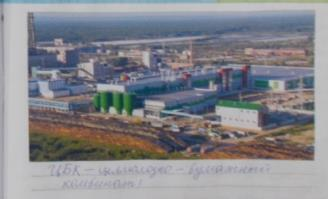 ЦБК – целлюлозно – бумажный
комбинат!